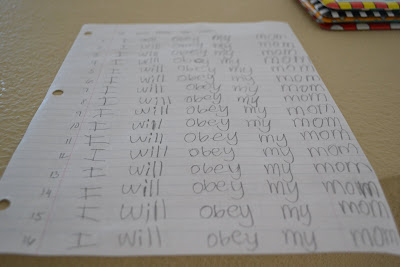 I will obey my mom
I will obey my mom
I will obey my mom
I will obey my mom
I will obey my mom
I will obey my mom
I will obey my mom
I will obey my mom
9 I will obey my mom
10 I will obey my mom
11 I will obey my mom
12 I will obey my mom
13 I will obey my mom
14 I will obey my mom
15 I will obey my mom
16 I will obey my mom